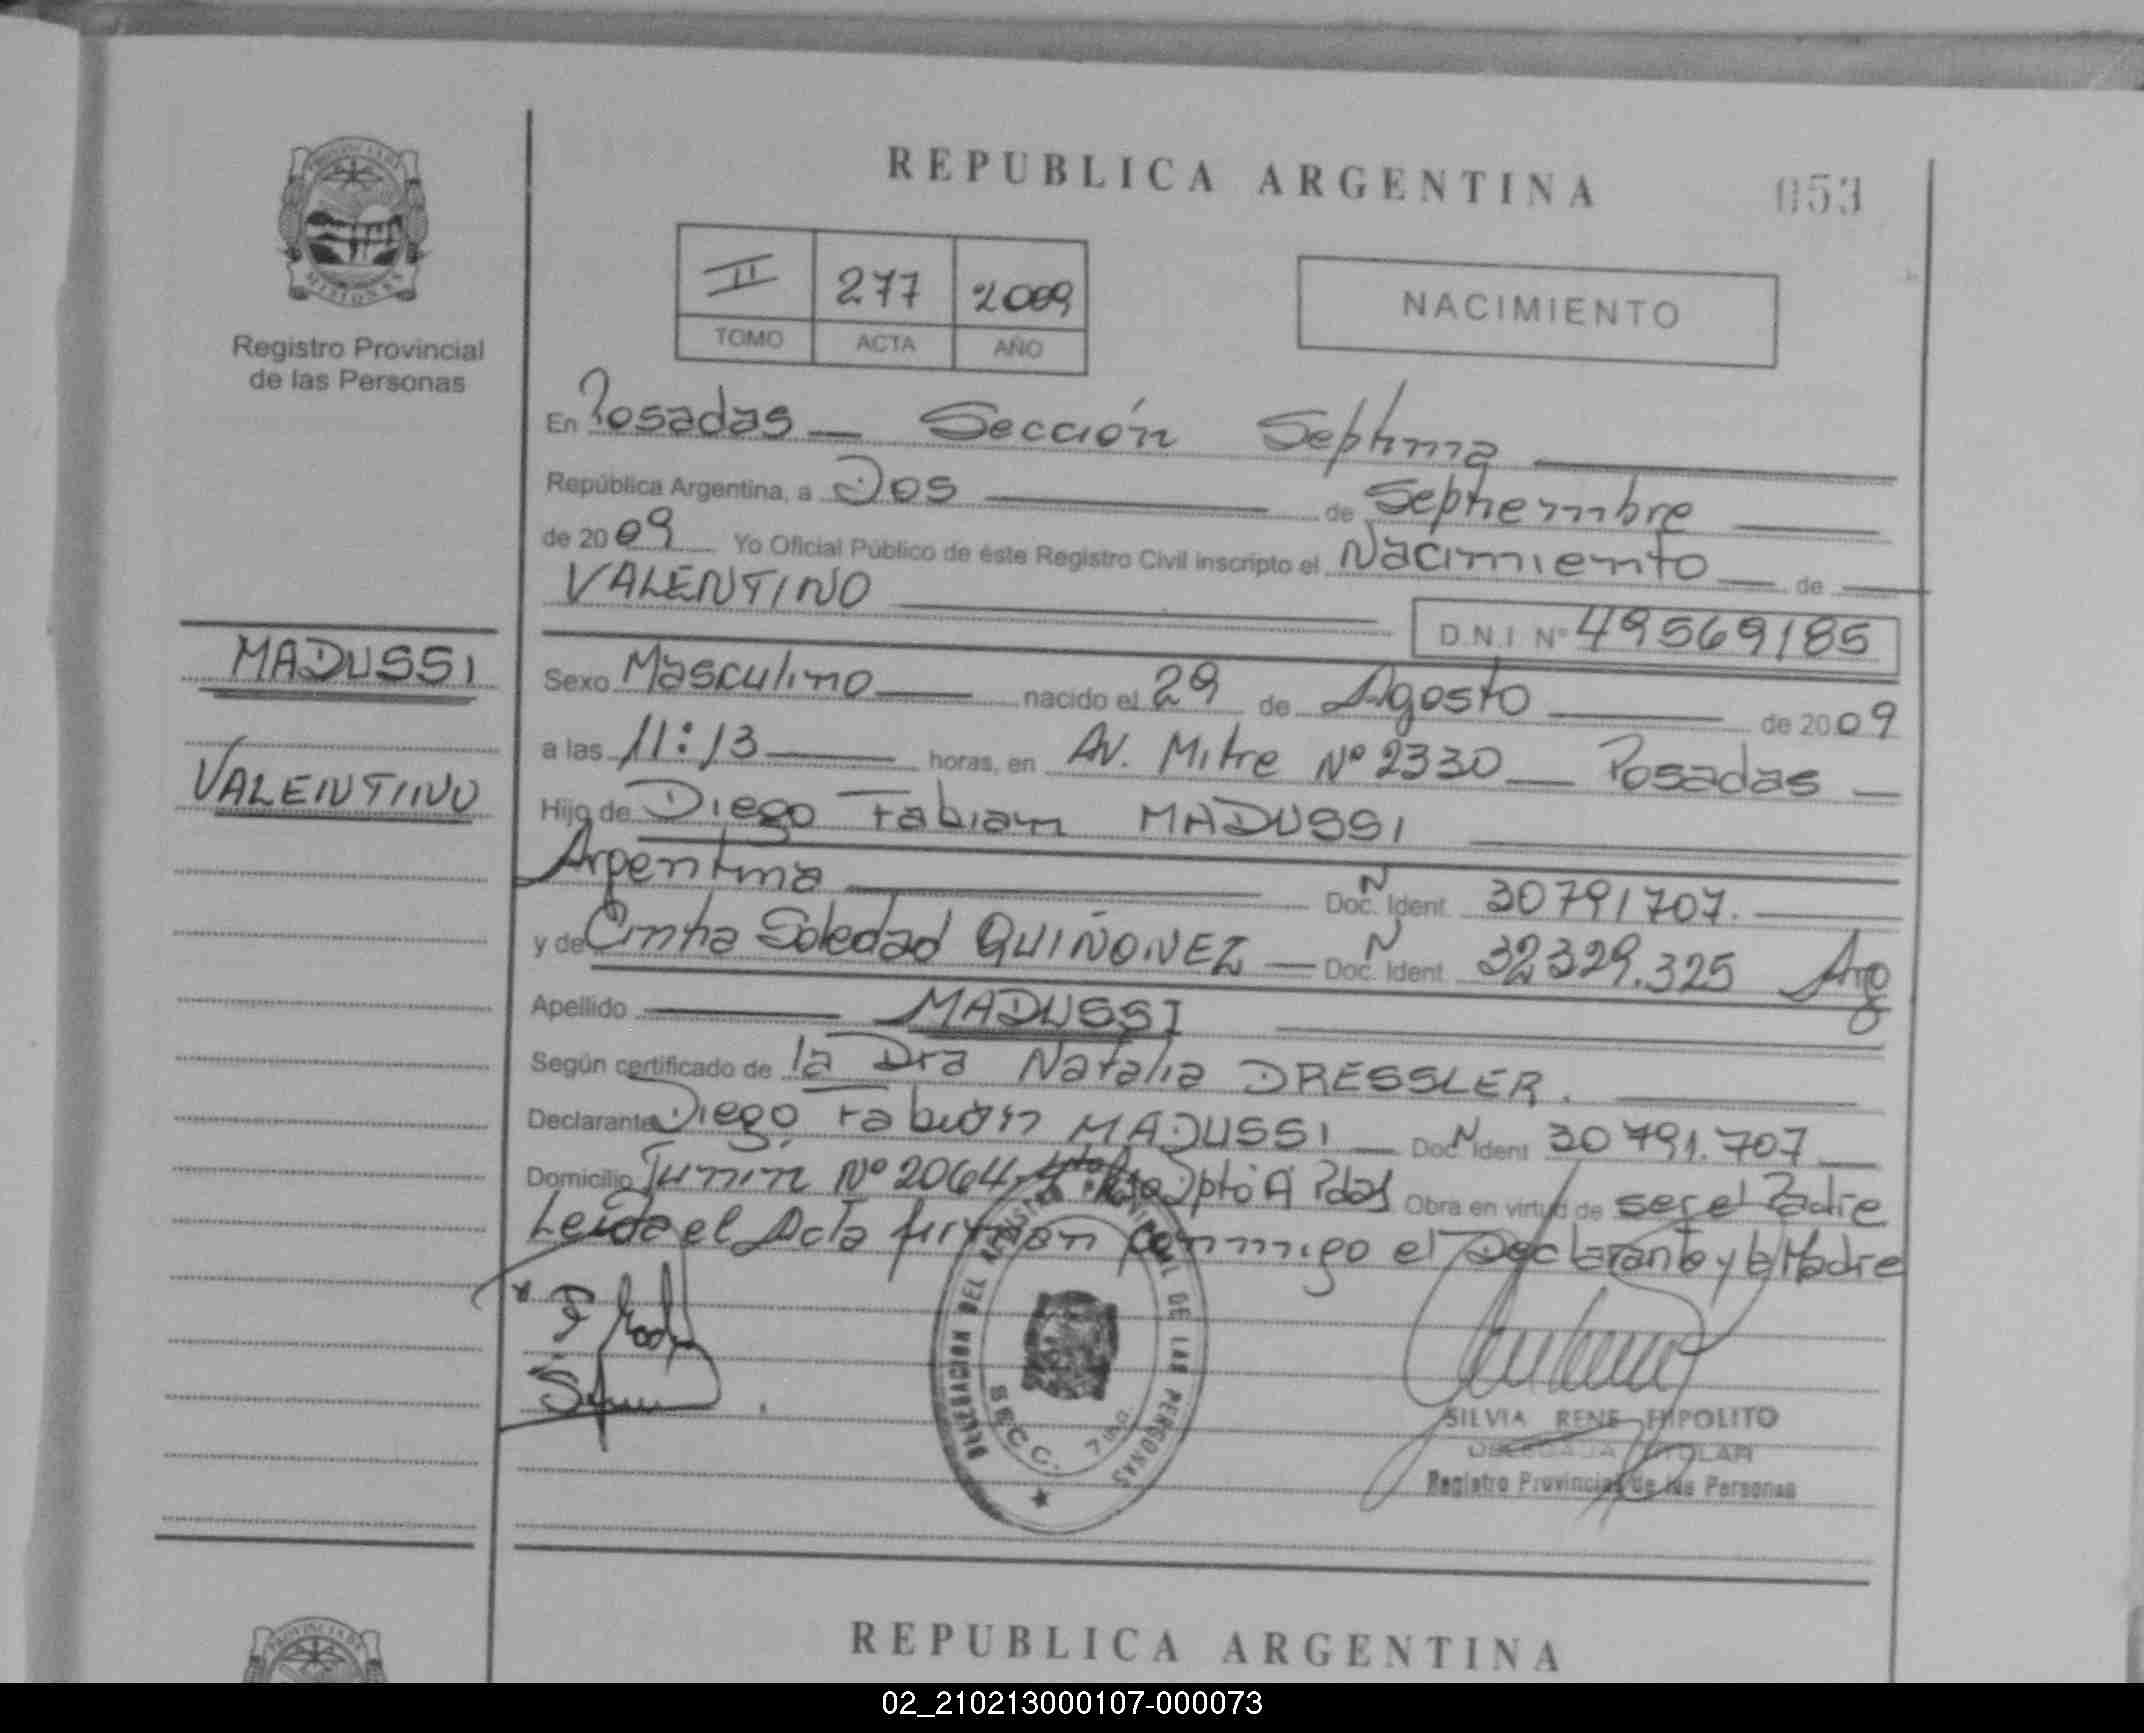 PROVINCIA DE
MISIONES
Registro Provincial
de las Personas
REPUBLICA ARGENTINA
053
II 277 2009
TOMO ACTA AÑO
NACIMIENTO
En Posadas — Sección Septima
República Argentina, a Dos de Septiembre
de 2009 Yo Oficial Público de éste Registro Civil inscripto el Nacimiento — de —
VALENTINO
D.N.I. Nº 49569185
MADUSSI
VALENTINO
Sexo Masculino — nacido el 29 de Agosto — de 2009
a las 11:13 — horas, en Av. Mitre Nº 2330 — Posadas —
Hijo de Diego Fabian MADUSSI
Argentina — Doc. N Ident. 30791707.
y de Cintia Soledad QUIÑONEZ — Doc. N Ident. 32329.325 Arg
Apellido — MADUSSI
Según certificado de la Dra Natalia DRESSLER.
Declarante Diego Fabián MADUSSI — Doc. N Ident 30791.707 —
Domicilio Junin Nº 2064 Dpto A Pdas Obra en virtud de ser el Padre
Leida el Acta firman conmigo el Declarante y la Madre
DELEGACION DEL REGISTRO PROVINCIAL DE LAS PERSONAS
SECC. 7ma
SILVIA RENE HIPOLITO
DELEGADA TITULAR
Registro Provincial de las Personas
PROVINCIA DE
REPUBLICA ARGENTINA
02_210213000107-000073